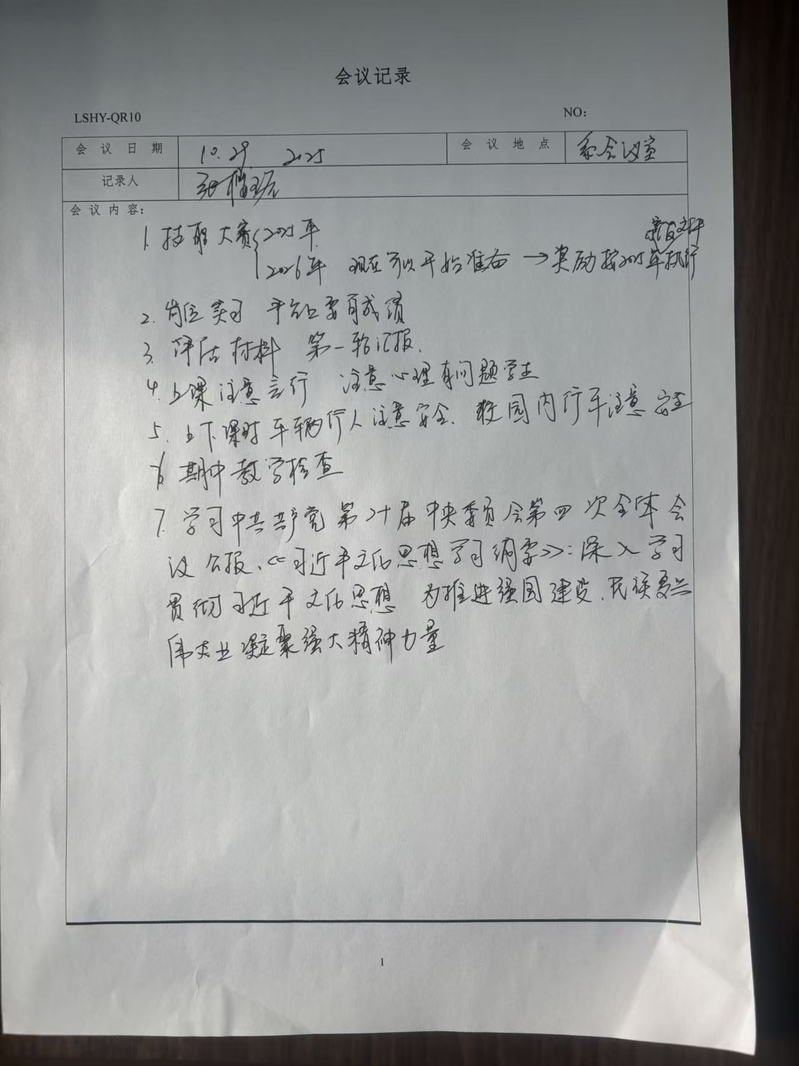 会议记录
LSHY-QR10 NO:
会议日期 10.29 2025 会议地点 系会议室
记录人
会议内容:
1. 技能大赛 2025年
2026年 现在可以开始准备 → 奖励按2025年执行
2. 岗位实习 平台要有成绩
3. 评估材料 第一轮汇报.
4. 上课注意言行 注意心理有问题学生
5. 上下课时车辆行人注意安全. 校园内行车注意安全
6. 期中教学检查
7. 学习中共共产党第二十届中央委员会第四次全体会
议公报、《习近平文化思想学习纲要》: 深入学习
贯彻习近平文化思想 为推进强国建设、民族复兴
伟大业凝聚强大精神力量
1